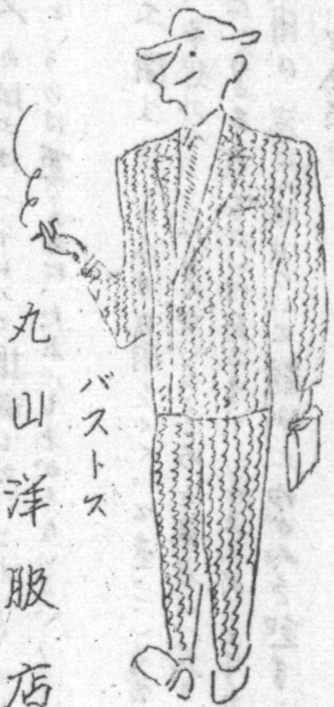 バストス
丸山洋服店